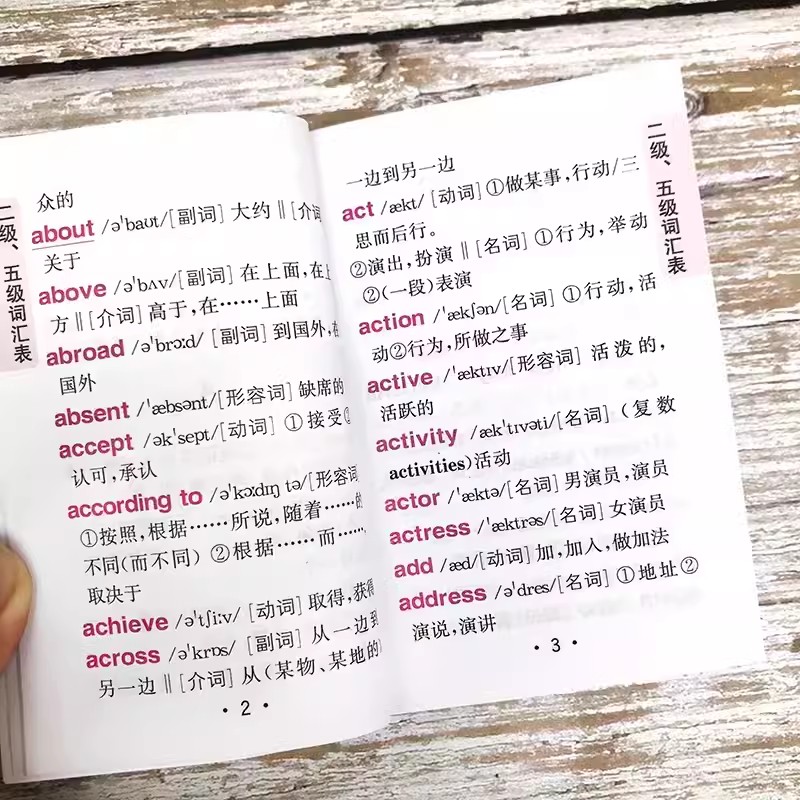 二级、五级词汇表
众的
about /ə'baʊt/[副词] 大约 ‖ [介词]
关于
above /ə'bʌv/[副词] 在上面,在上
方 ‖ [介词] 高于,在……上面
abroad /ə'brɔːd/ [副词] 到国外,在
国外
absent /'æbsənt/[形容词] 缺席的
accept /ək'sept/[动词] ①接受②
认可,承认
according to /ə'kɔːdɪŋ tə/[形容词]
①按照,根据……所说,随着……的
不同(而不同) ②根据……而……,
取决于
achieve /ə'tʃiːv/ [动词] 取得,获得
across /ə'krɒs/ [副词] 从一边到
另一边 ‖ [介词] 从(某物、某地的)
· 2 ·
二级、五级词汇表
一边到另一边
act /ækt/ [动词] ①做某事,行动/三
思而后行。
②演出,扮演 ‖ [名词] ①行为,举动
②(一段)表演
action /'ækʃən/[名词] ①行动,活
动②行为,所做之事
active /'æktɪv/[形容词] 活泼的,
活跃的
activity /æk'tɪvəti/[名词] (复数
activities)活动
actor /'æktə/[名词] 男演员,演员
actress /'æktrəs/[名词] 女演员
add /æd/[动词] 加,加入,做加法
address /ə'dres/[名词] ①地址②
演说,演讲
· 3 ·